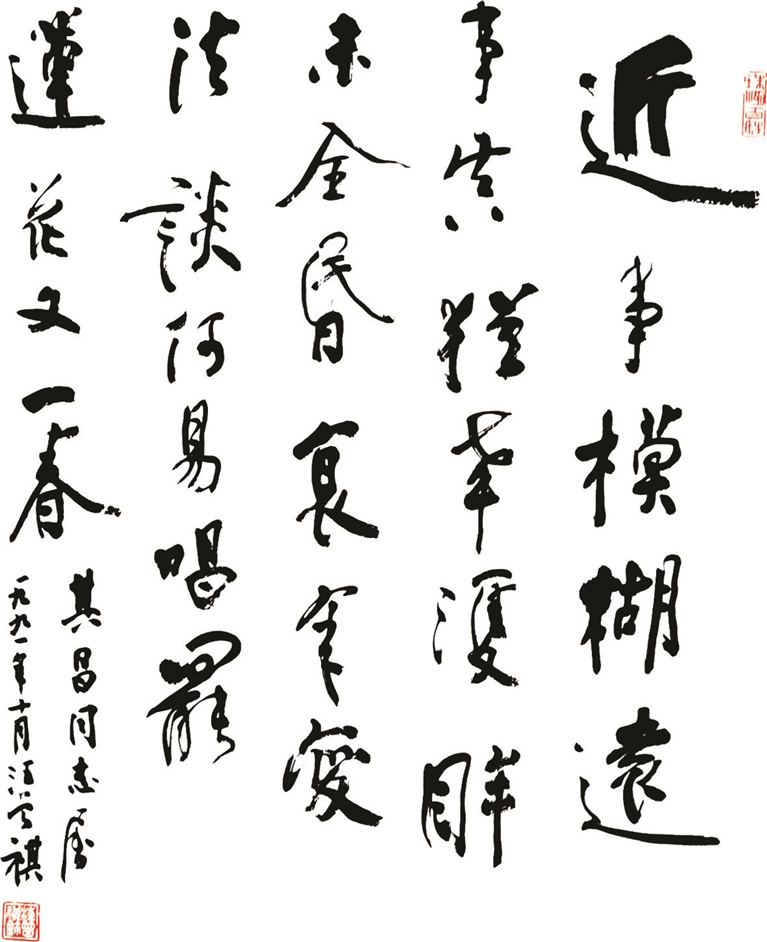 近事模糊遠
事真猶幸雙眸
未全昏衰年變
法談何易唱罷
蓮花又一春
其昌同志屬
一九九一年十月汪曾祺